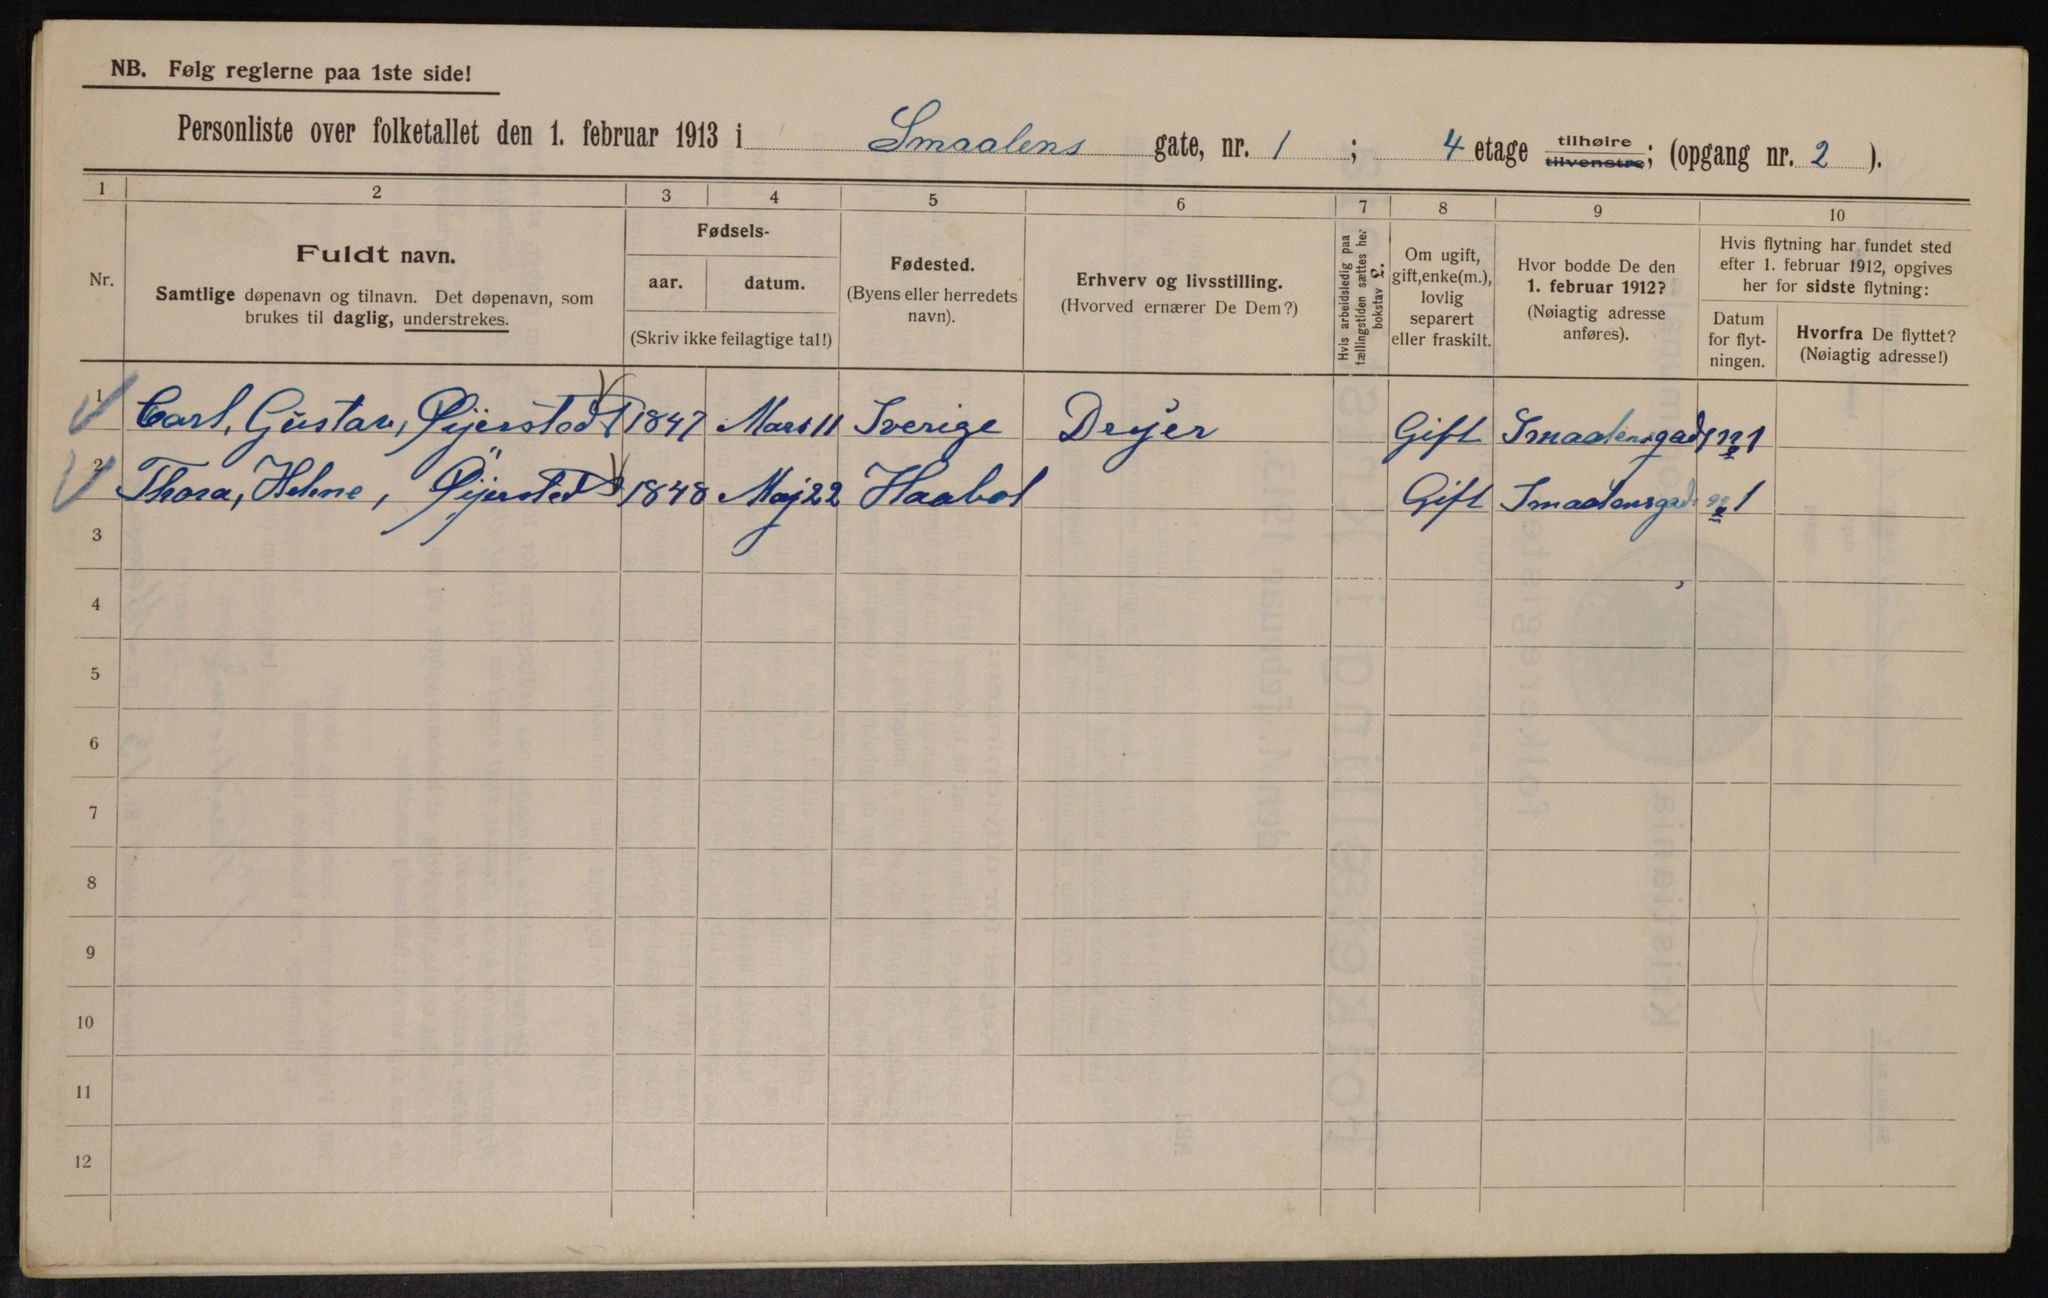 NB. Følg reglerne paa 1ste side!
Personliste over folketallet den 1. februar 1913 i Smaalens gate, nr. 1 ; 4 etage tilhøire tilvenstre; (opgang nr. 2 ).
1 2 3 4 5 6 7 8 9 10
Nr.
Fuldt navn.
Samtlige døpenavn og tilnavn. Det døpenavn, som
brukes til daglig, understrekes.
Fødsels-
aar. datum.
(Skriv ikke feilagtige tal!)
Fødested.
(Byens eller herredets
navn).
Erhverv og livsstilling.
(Hvorved ernærer De Dem?)
Hvis arbeidsledig paa
tællingstiden sættes her
bokstav
Om ugift,
gift, enke(m.),
lovlig
separert
eller fraskilt.
Hvor bodde De den
1. februar 1912?
(Nøiagtig adresse
anføres).
Hvis flytning har fundet sted
efter 1. februar 1912, opgives
her for sidste flytning:
Datum
for flyt-
ningen.
Hvorfra De flyttet?
(Nøiagtig adresse!)
1 Carl, Gustav, Øijersted 1847 Mars 11 Sverige Dryer Gift Smaalensgad no 1
2 Thora, Helene, Øijersted 1848 Maj 22 Haabøl Gift Smaalensgad no 1
3
4
5
6
7
8
9
10
11
12